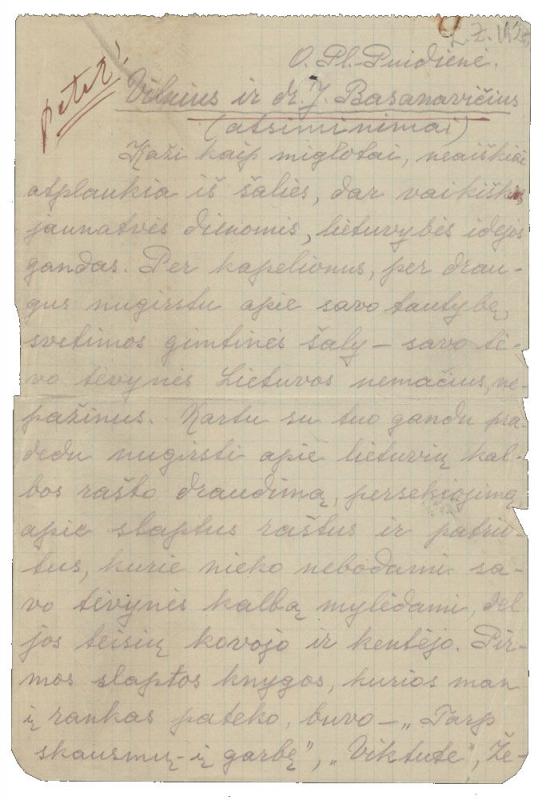 L. Ž. 1925
petet!
O. Pl. Puidienė.
Vilnius ir dr. J. Basanavičius
(atsiminimai)
Kaži kaip miglotai, neaiškiai
atplaukia iš šalies, dar vaikiškos
jaunatvės dienomis, lietuvybės idėjos
gandas. Per kapelionus, per drau-
gus nugirstu apie savo tautybę,
svetimos gimtinės šaly – savo tė-
vo tėvynės Lietuvos nemačius, ne-
pažinus. Kartu su tuo gandu pra-
dedu nugirsti apie lietuvių kal-
bos rašto draudimą, persekiojimą
apie slaptus raštus ir patrio-
tus, kurie nieko nebodami sa-
vo tėvynės kalbą mylėdami, dėl
jos teisių kovojo ir kentėjo. Pir-
mos slaptos knygos, kurios man
į rankas pateko, buvo – „Tarp
skausmų į garbę", „Viktutė", Že-